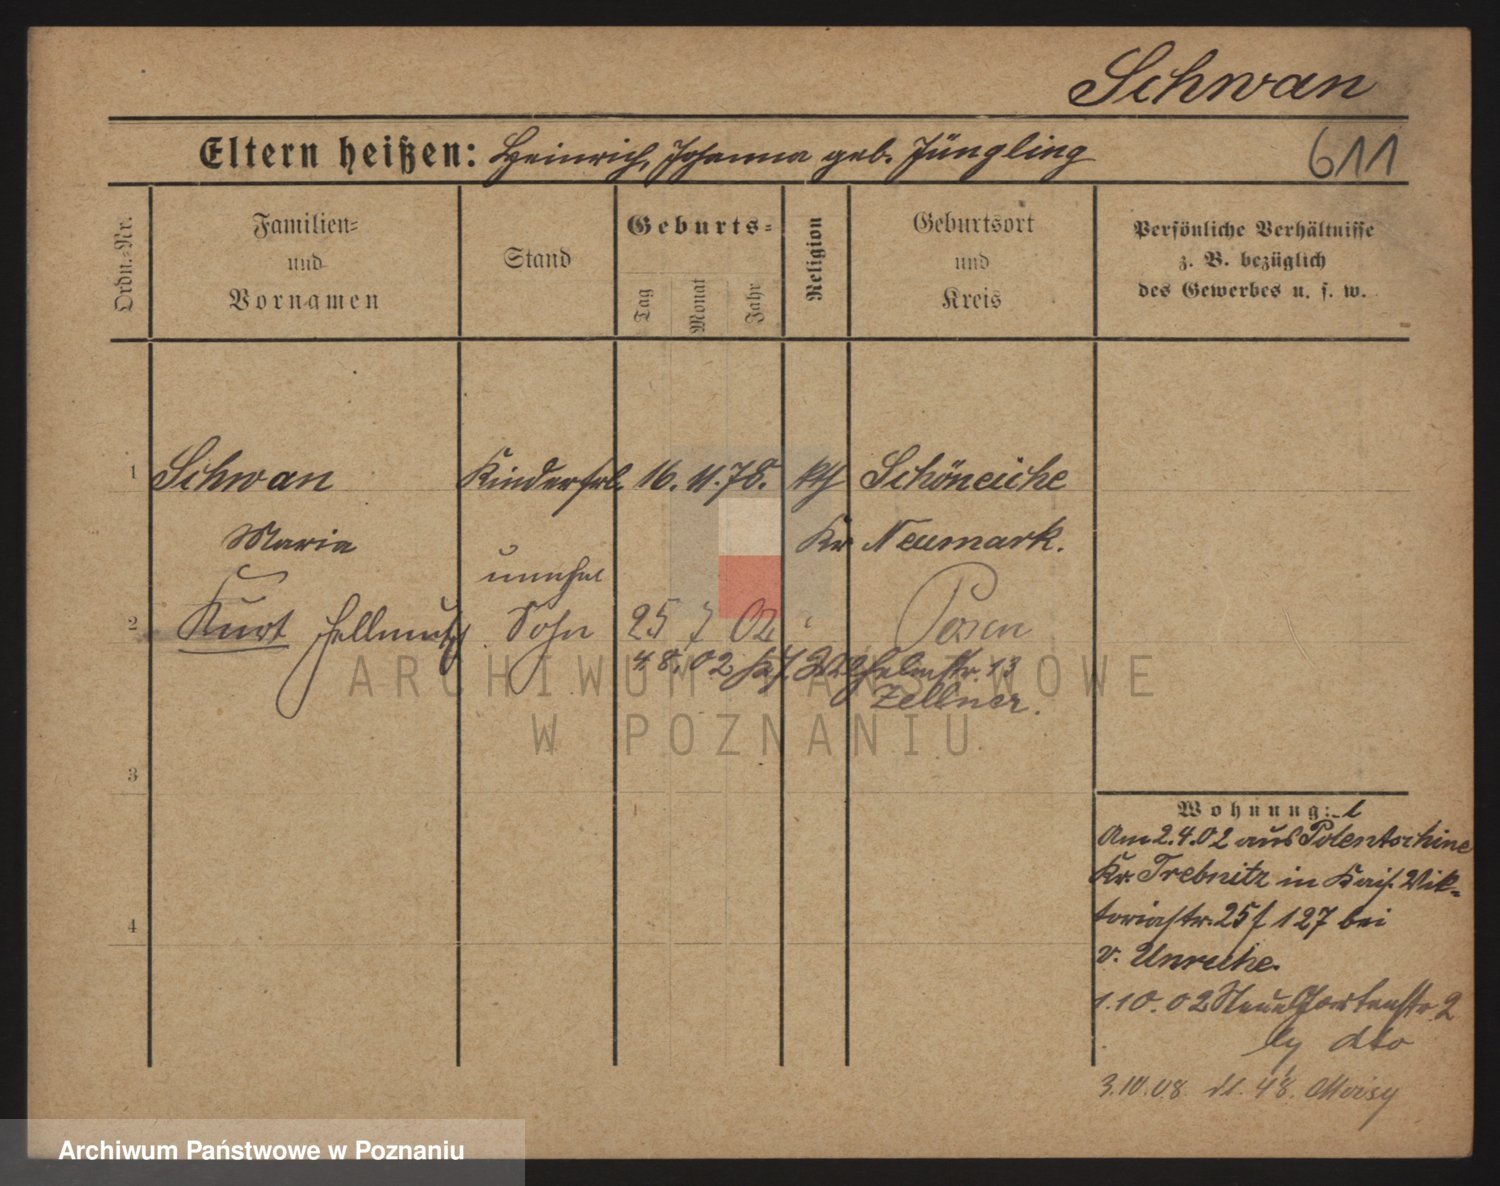 Schwan
Eltern heißen: Heinrich, Johanna geb. Jüngling
611
Ordn.-Nr.
Familien-
und
Vornamen
Stand
Geburts-
Tag
Monat
Jahr
Religion
Geburtsort
und
Kreis
Persönliche Verhältnisse
z. B. bezüglich
des Gewerbes u. s. w.
1 Schwan Kinderfrl. 16. 11. 78. kth Schöneiche
Maria Kr Neumark.
unehel
2 Kurt Hellmuth Sohn 25 7 02 Posen
4 8. 02 Wilhelmstr. 13
Zellner.
ARCHIWUM PAŃSTWOWE
W POZNANIU
3
4
Wohnung:
Am 2.4.02 aus Polentschine
Kr. Trebnitz in Kais. Vik-
toriastr. 25 f 127 bei
v. Unruhe.
1.10.02 Neue Gartenstr. 2
dto
3.10.08. 48.
Archiwum Państwowe w Poznaniu